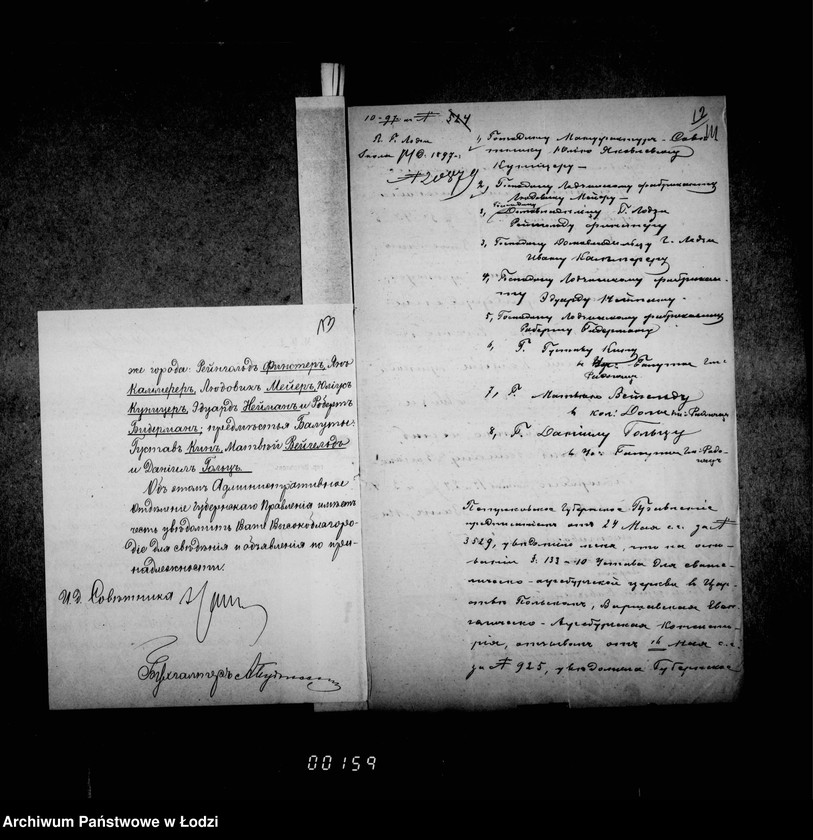 13
же города: Рейнгольдъ Финстеръ, Янъ
Каммереръ, Людовикъ Мейеръ, Юліусъ
Куницеръ, Эдуардъ Нейманъ и Робертъ
Бидерманъ; предмѣстья Балуты:
Густавъ Кинъ, Матвѣй Вейгельдъ
и Даніилъ Гольцъ.
Объ этомъ Административное
Отдѣленіе Губернскаго Правленія имѣетъ
честь увѣдомить Ваше Высокоблагоро-
діе для свѣдѣнія и объявленія по при-
надлежности.
И.Д. Совѣтника
Бухгалтеръ
12
Г. Лодзь
1897 г.
№ 20879
1, Господину Мануфактуръ-Совѣт-
нику Юлію Яковлевичу
Куницеру
2, Господину Лодзинскому фабриканту
Людовику Мейеру
Г. Лодзи
Рейнгольду Финстеру
3, Господину Домовладѣльцу г. Лодзи
Ивану Каммереру
4, Господину Лодзинскому фабрикан-
ту Эдуарду Нейману
5, Господину Лодзинскому фабриканту
Роберту Бидерману
6, Г. Густаву Кину
7, Г. Матвѣю Вейгельду
в кол.
8, Г. Даніилу Гольцу
Петроковское Губернское Правленіе
предписаніемъ отъ 24 Мая с.г. за №
3529, увѣдомило меня, что на осно-
ваніи § 132-10 Устава для еванге-
лическо-аугсбургской церкви въ Цар-
ствѣ Польскомъ, Варшавская Еван-
гелическо-Аугсбургская Консисто-
рія, отзывомъ отъ 16 Мая с.г.
за № 925, увѣдомила Губернское
00159
Archiwum Państwowe w Łodzi